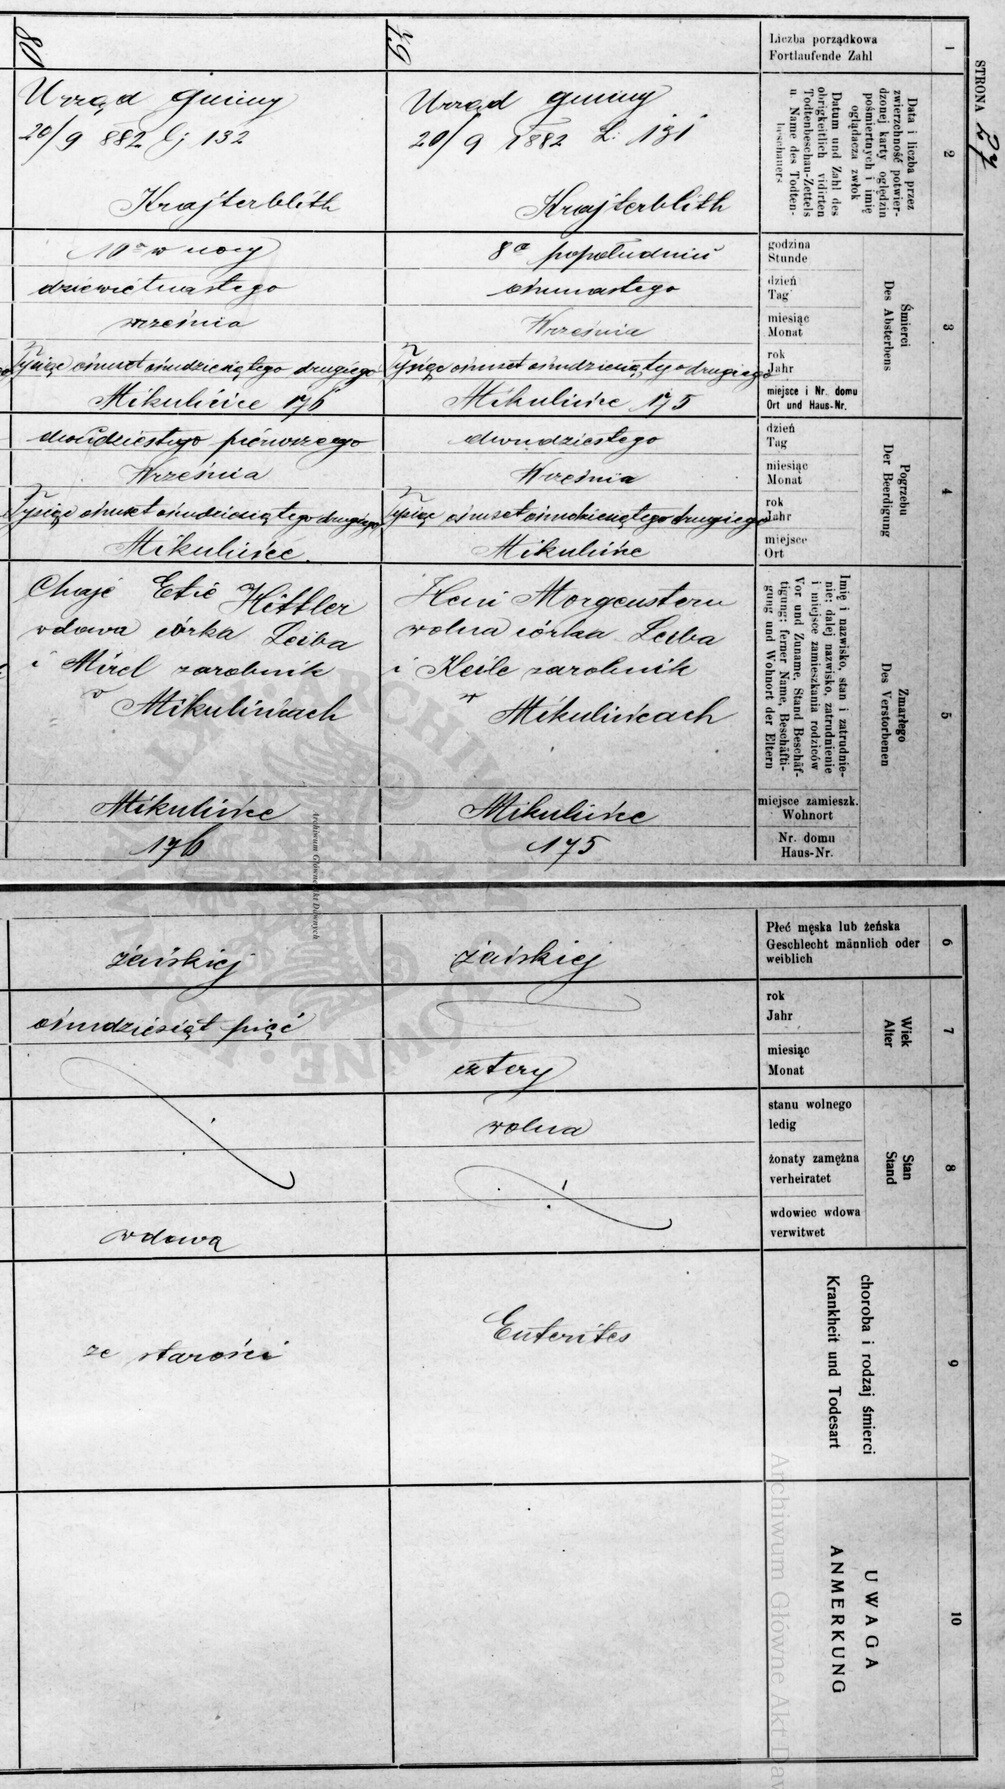 STRONA 27
1
Liczba porządkowa
Fortlaufende Zahl
2
Data i liczba przez
zwierzchność potwier-
dzonej karty oględzin
pośmiertnych i imię
oglądacza zwłok
Datum und Zahl des
obrigkeitlich vidirten
Todtenbeschau-Zettels
u. Name des Todten-
beschauers
3
Śmierci
Des Absterbens
godzina
Stunde
dzień
Tag
miesiąc
Monat
rok
Jahr
miejsce i Nr. domu
Ort und Haus-Nr.
4
Pogrzebu
Der Beerdigung
dzień
Tag
miesiąc
Monat
rok
Jahr
miejsce
Ort
5
Zmarłego
Des Verstorbenen
Imię i nazwisko, stan i zatrudnie-
nie: dalej nazwisko, zatrudnienie
i miejsce zamieszkania rodziców
Vor und Zuname, Stand Beschäf-
tigung; ferner Name, Beschäfti-
gung und Wohnort der Eltern
miejsce zamieszk.
Wohnort
Nr. domu
Haus-Nr.
6
Płeć męska lub żeńska
Geschlecht männlich oder
weiblich
7
Wiek
Alter
rok
Jahr
miesiąc
Monat
8
Stan
Stand
stanu wolnego
ledig
żonaty zamężna
verheiratet
wdowiec wdowa
verwitwet
9
choroba i rodzaj śmierci
Krankheit und Todesart
10
UWAGA
ANMERKUNG
79
Urząd gminy
20/9 1882 L: 131
Krajterblith
8a popołudniu
ósmnastego
Września
Tysiąc ósmset ósmdziesiątego drugiego
Mikulińce 175
dwudziestego
Września
Tysiąc ósmset ósmdziesiątego drugiego
Mikulińce
Heni Morgenstern
wolna córka Leiba
i Keile zarobnik
w
Mikulińcach
Mikulińce
175
żeńskiej
cztery
wolna
Enterites
80
Urząd gminy
20/9 882 L; 132
Krajterblith
10a w nocy
dziewiętnastego
września
Tysiąc ósmset ósmdziesiątego drugiego
Mikulińce 176
dwudziestego pierwszego
Września
Tysiąc ósmset ósmdziesiątego drugiego
Mikulińce
Chaje Etie Hittler
wdowa córka Leiba
i Mirel zarobnik
w
Mikulińcach
Mikulińce
176
żeńskiej
ósmdziesiąt pięć
wdową
ze starości
Archiwum Główne Akt Dawnych
Archiwum Główne Akt Daw